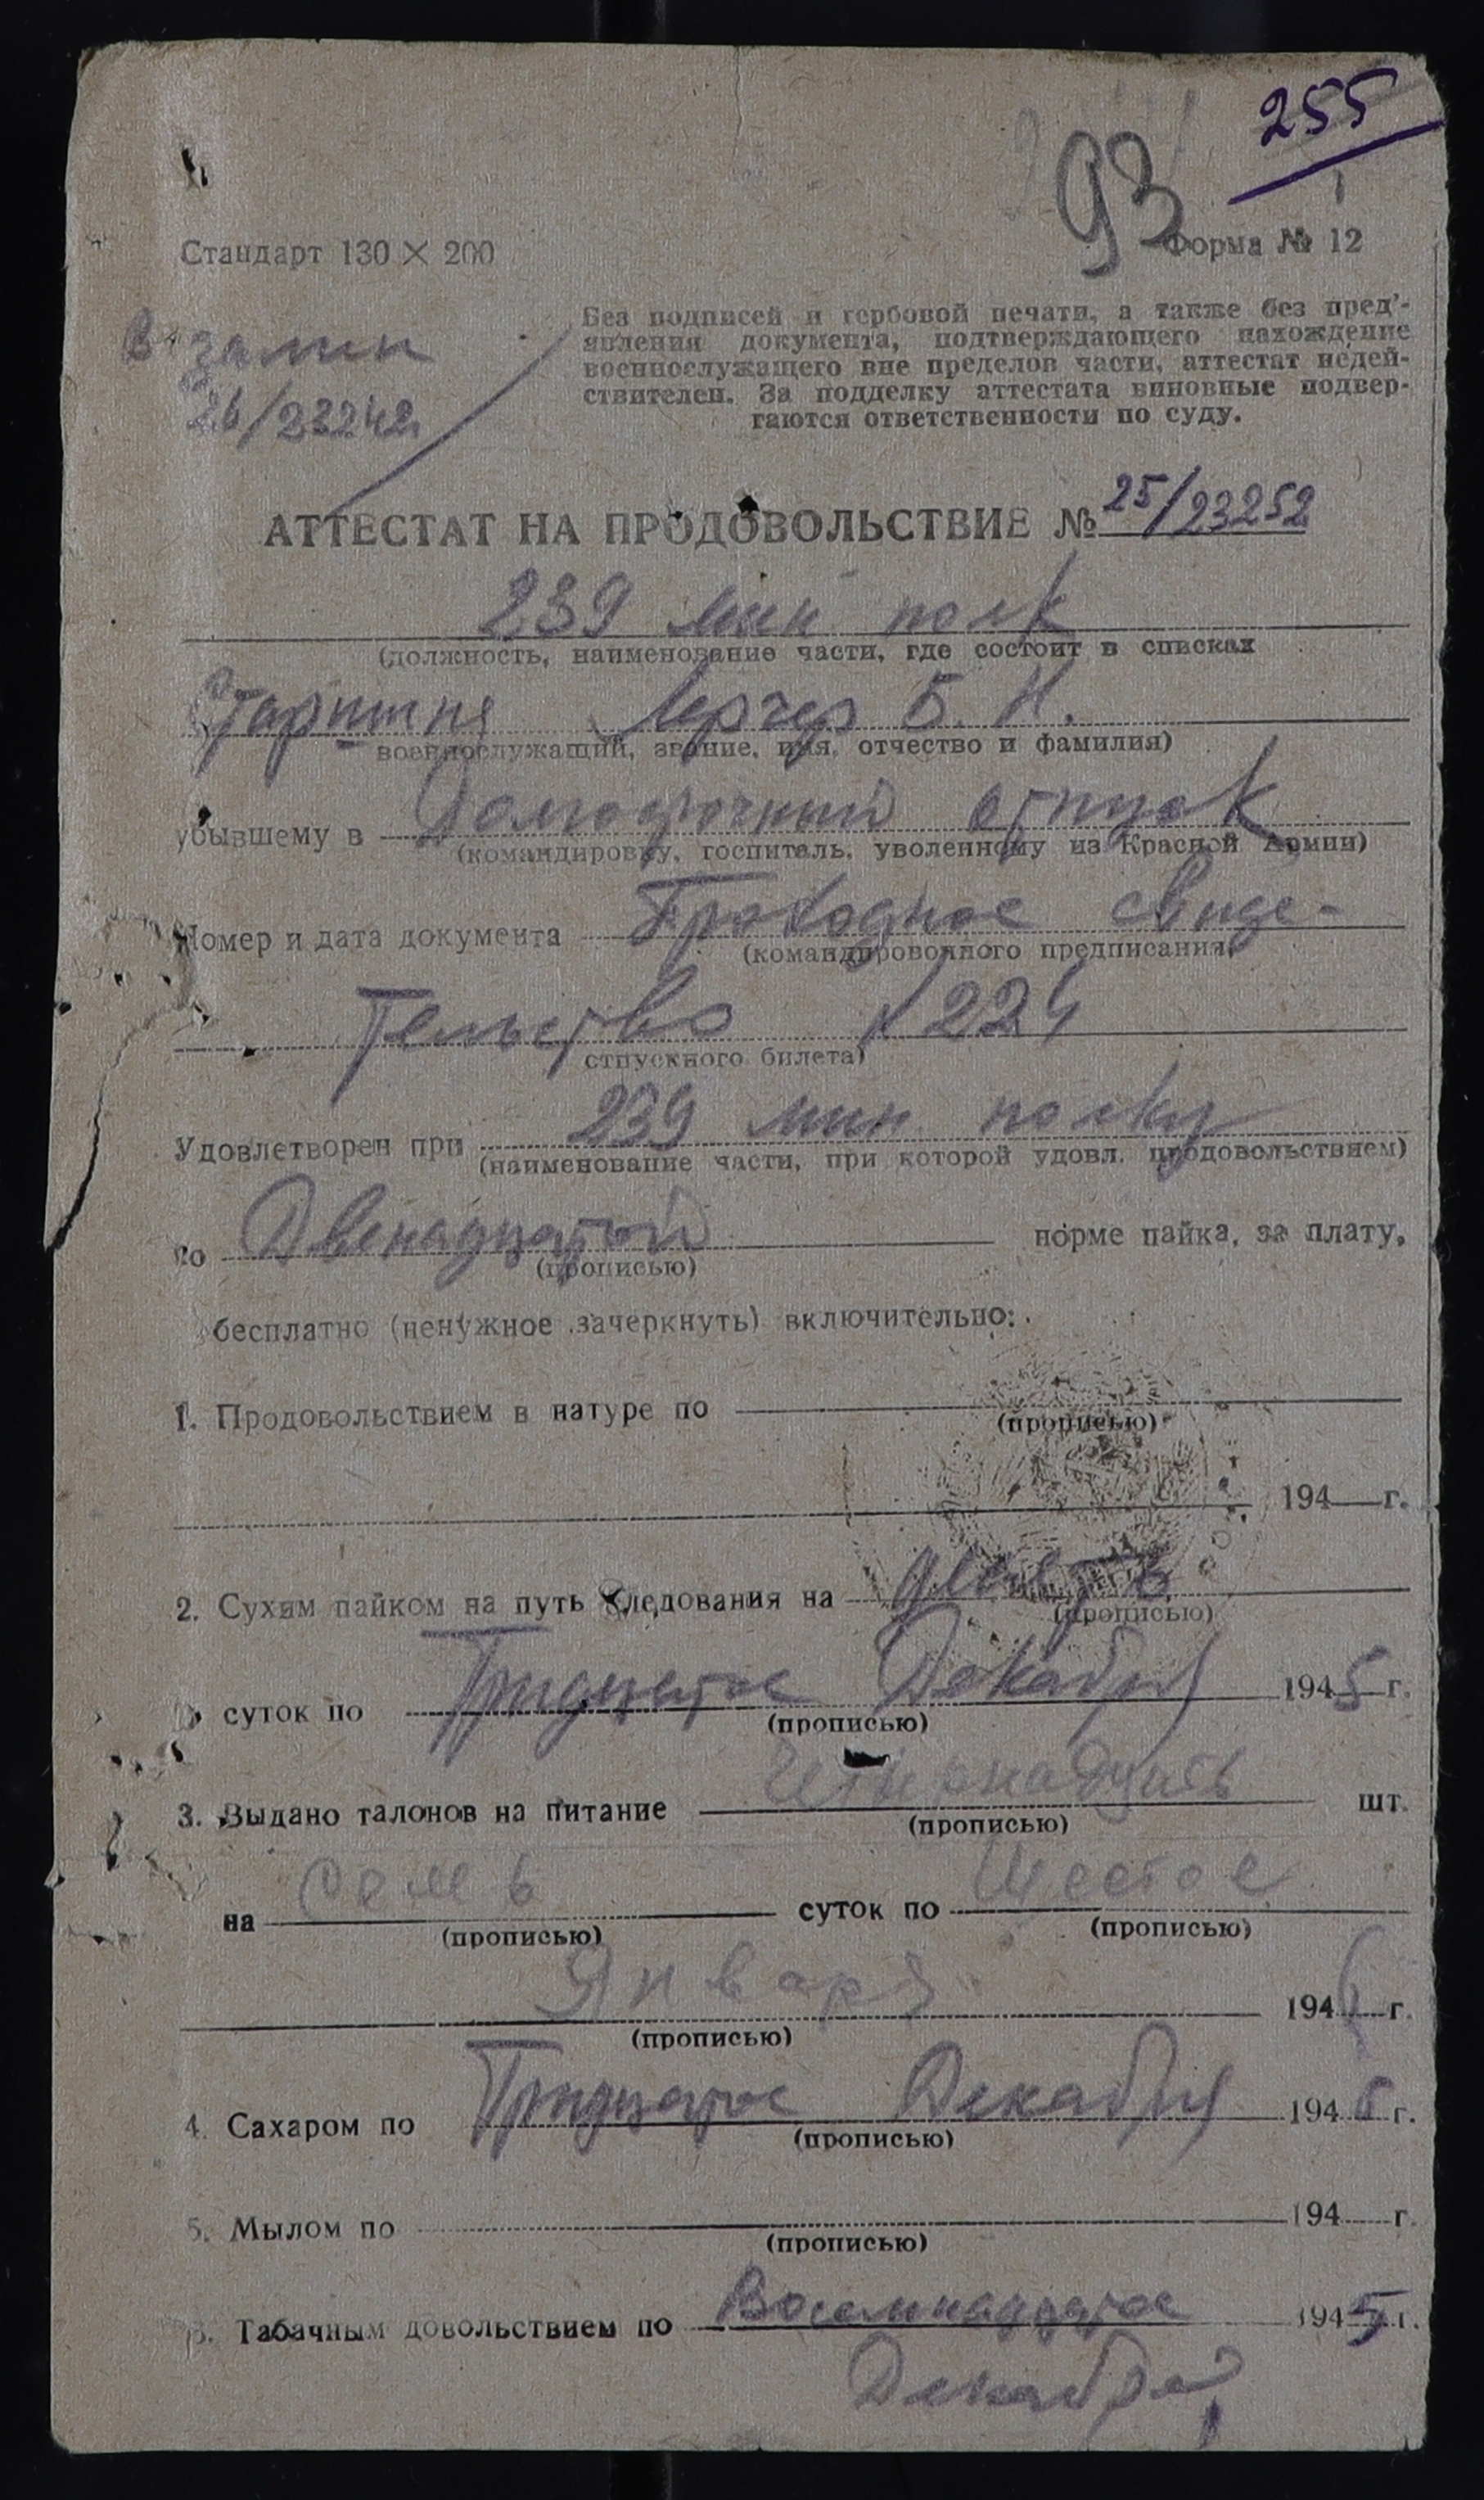 255
93
Стандарт 130 × 200
Форма № 12
Взамен
26/23242
Без подписей и гербовой печати, а также без пред'-
явления документа, подтверждающего нахождение
военнослужащего вне пределов части, аттестат недей-
ствителен. За подделку аттестата виновные подвер-
гаются ответственности по суду.
АТТЕСТАТ НА ПРОДОВОЛЬСТВИЕ № 25/23252
239 мин полк
(должность, наименование части, где состоит в списках
Старшина Лерчер Б. Н.
военнослужащий, звание, имя, отчество и фамилия)
убывшему в Долгосрочный отпуск
(командировку, госпиталь, уволенному из Красной Армии)
Номер и дата документа Проходное свиде-
(командировочного предписания,
тельство № 224
отпускного билета)
Удовлетворен при 239 мин. полку
(наименование части, при которой удовл. продовольствием)
по Двенадцатой норме пайка, за плату,
(прописью)
бесплатно (ненужное зачеркнуть) включительно:
1. Продовольствием в натуре по
(прописью)
194 г.
2. Сухим пайком на путь следования на девять
(прописью)
суток по Тридцатое Декабря 1945 г.
(прописью)
3. Выдано талонов на питание Четырнадцать шт.
(прописью)
на семь суток по Шестое
(прописью) (прописью)
Января 1946 г.
(прописью)
4. Сахаром по Тридцатое Декабря 1945 г.
(прописью)
5. Мылом по 194 г.
(прописью)
6. Табачным довольствием по Восемнадцатое 1945 г.
Декабря